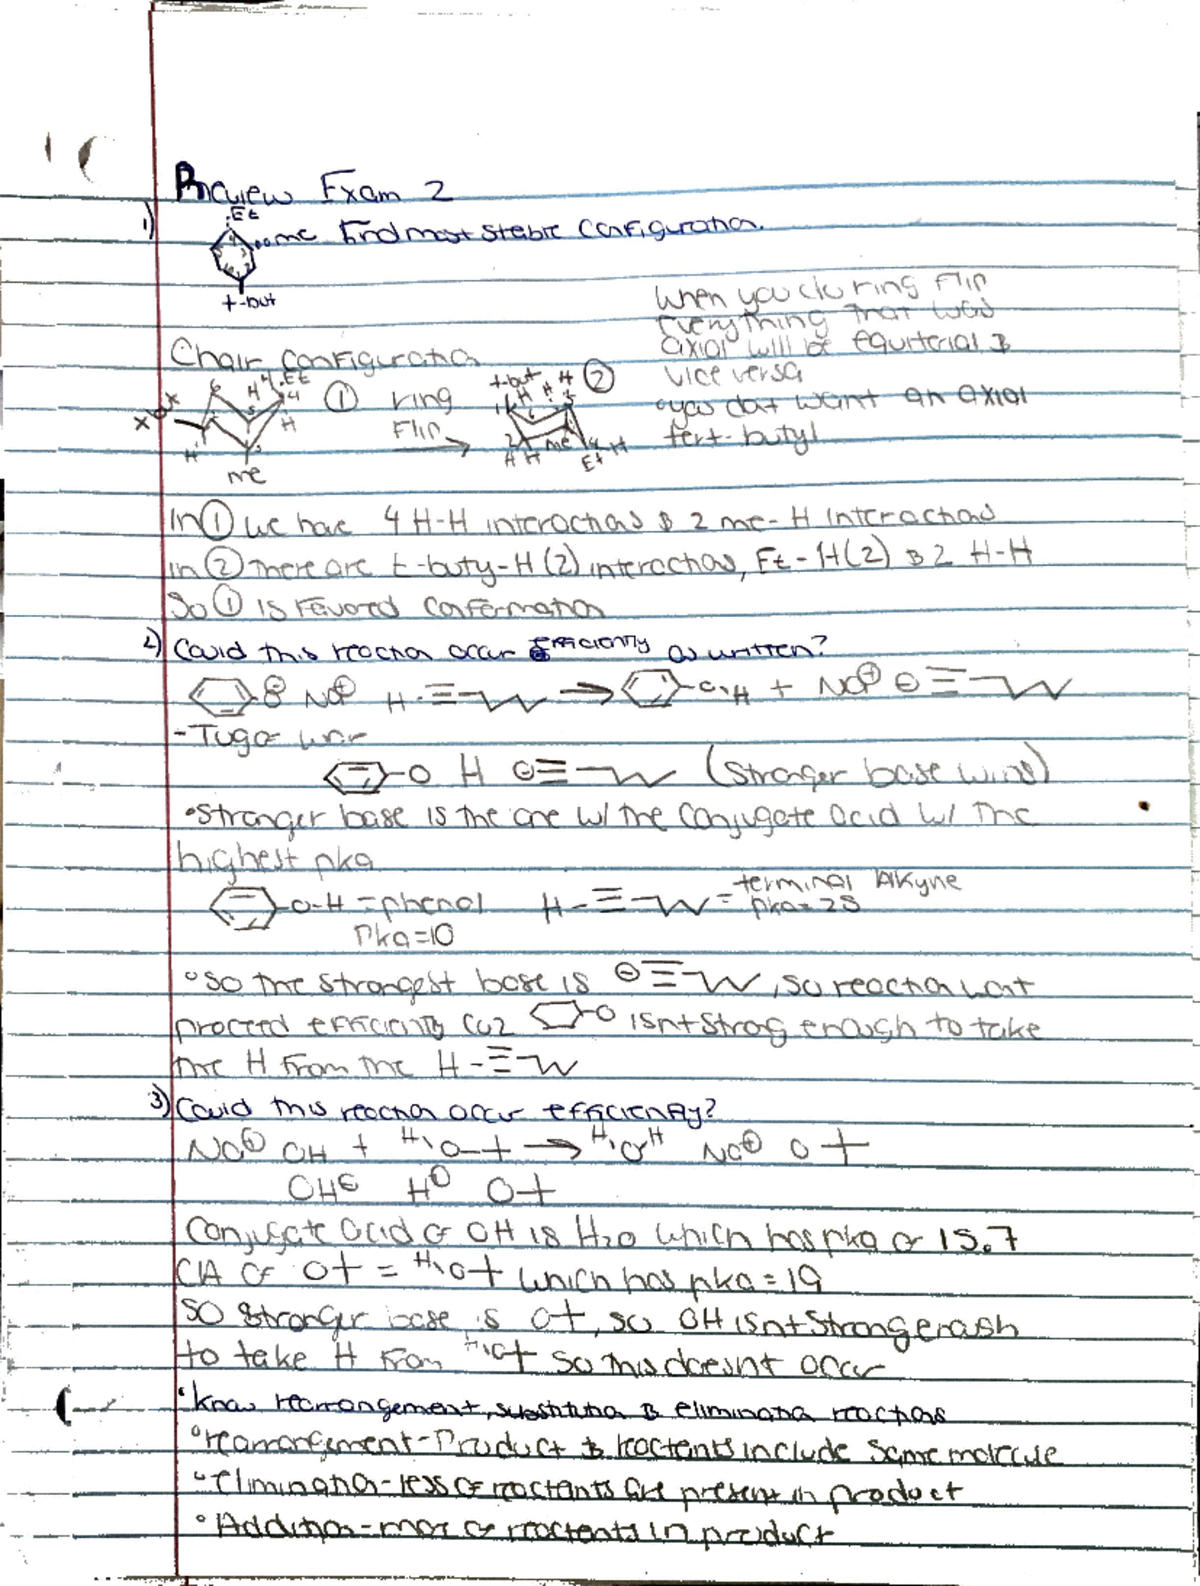 Review Exam 2
1) Et
me Find most stable configuration.
t-but
When you do ring flip
everything that was
axial will be equiterial &
vice versa
• you dont want an axial
tert-butyl
Chair configuration
① ring flip → ②
H Et 4 H H me
t-but H H H me Et H H H
In ① we have 4 H-H interactions & 2 me-H interactions
in ② there are t-buty-H (2) interactions, Et-H(2) & 2 H-H
So ① is favored conformation
2) Could this reaction occur efficiently as written?
O⊖ Na⊕ H-≡ → O-H + Na⊕ ⊖≡
-Tug of war
O H ⊖≡ (stronger base wins)
• Stronger base is the one w/ the conjugate acid w/ the
highest pka
O-H = phenol H-≡ = terminal Alkyne
pka=10 pka=25
• so the strongest base is ⊖≡, so reaction wont
proceed efficiently cuz O isnt strong enough to take
the H from the H-≡
3) Could this reaction occur efficiently?
Na⊕ OH + H O → H O H Na⊕ O
OH⊖ H O
Conjugate acid of OH is H2O which has pka of 15.7
CA of O = H O which has pka = 19
so stronger base is O, so OH isnt strong enough
to take H from H O so this doesnt occur
• know rearrangement, substitution & elimination reactions
• rearrangement-Product & reactents include same molecule
• elimination-less of reactants are present in product
• Addition-more of reactents in product